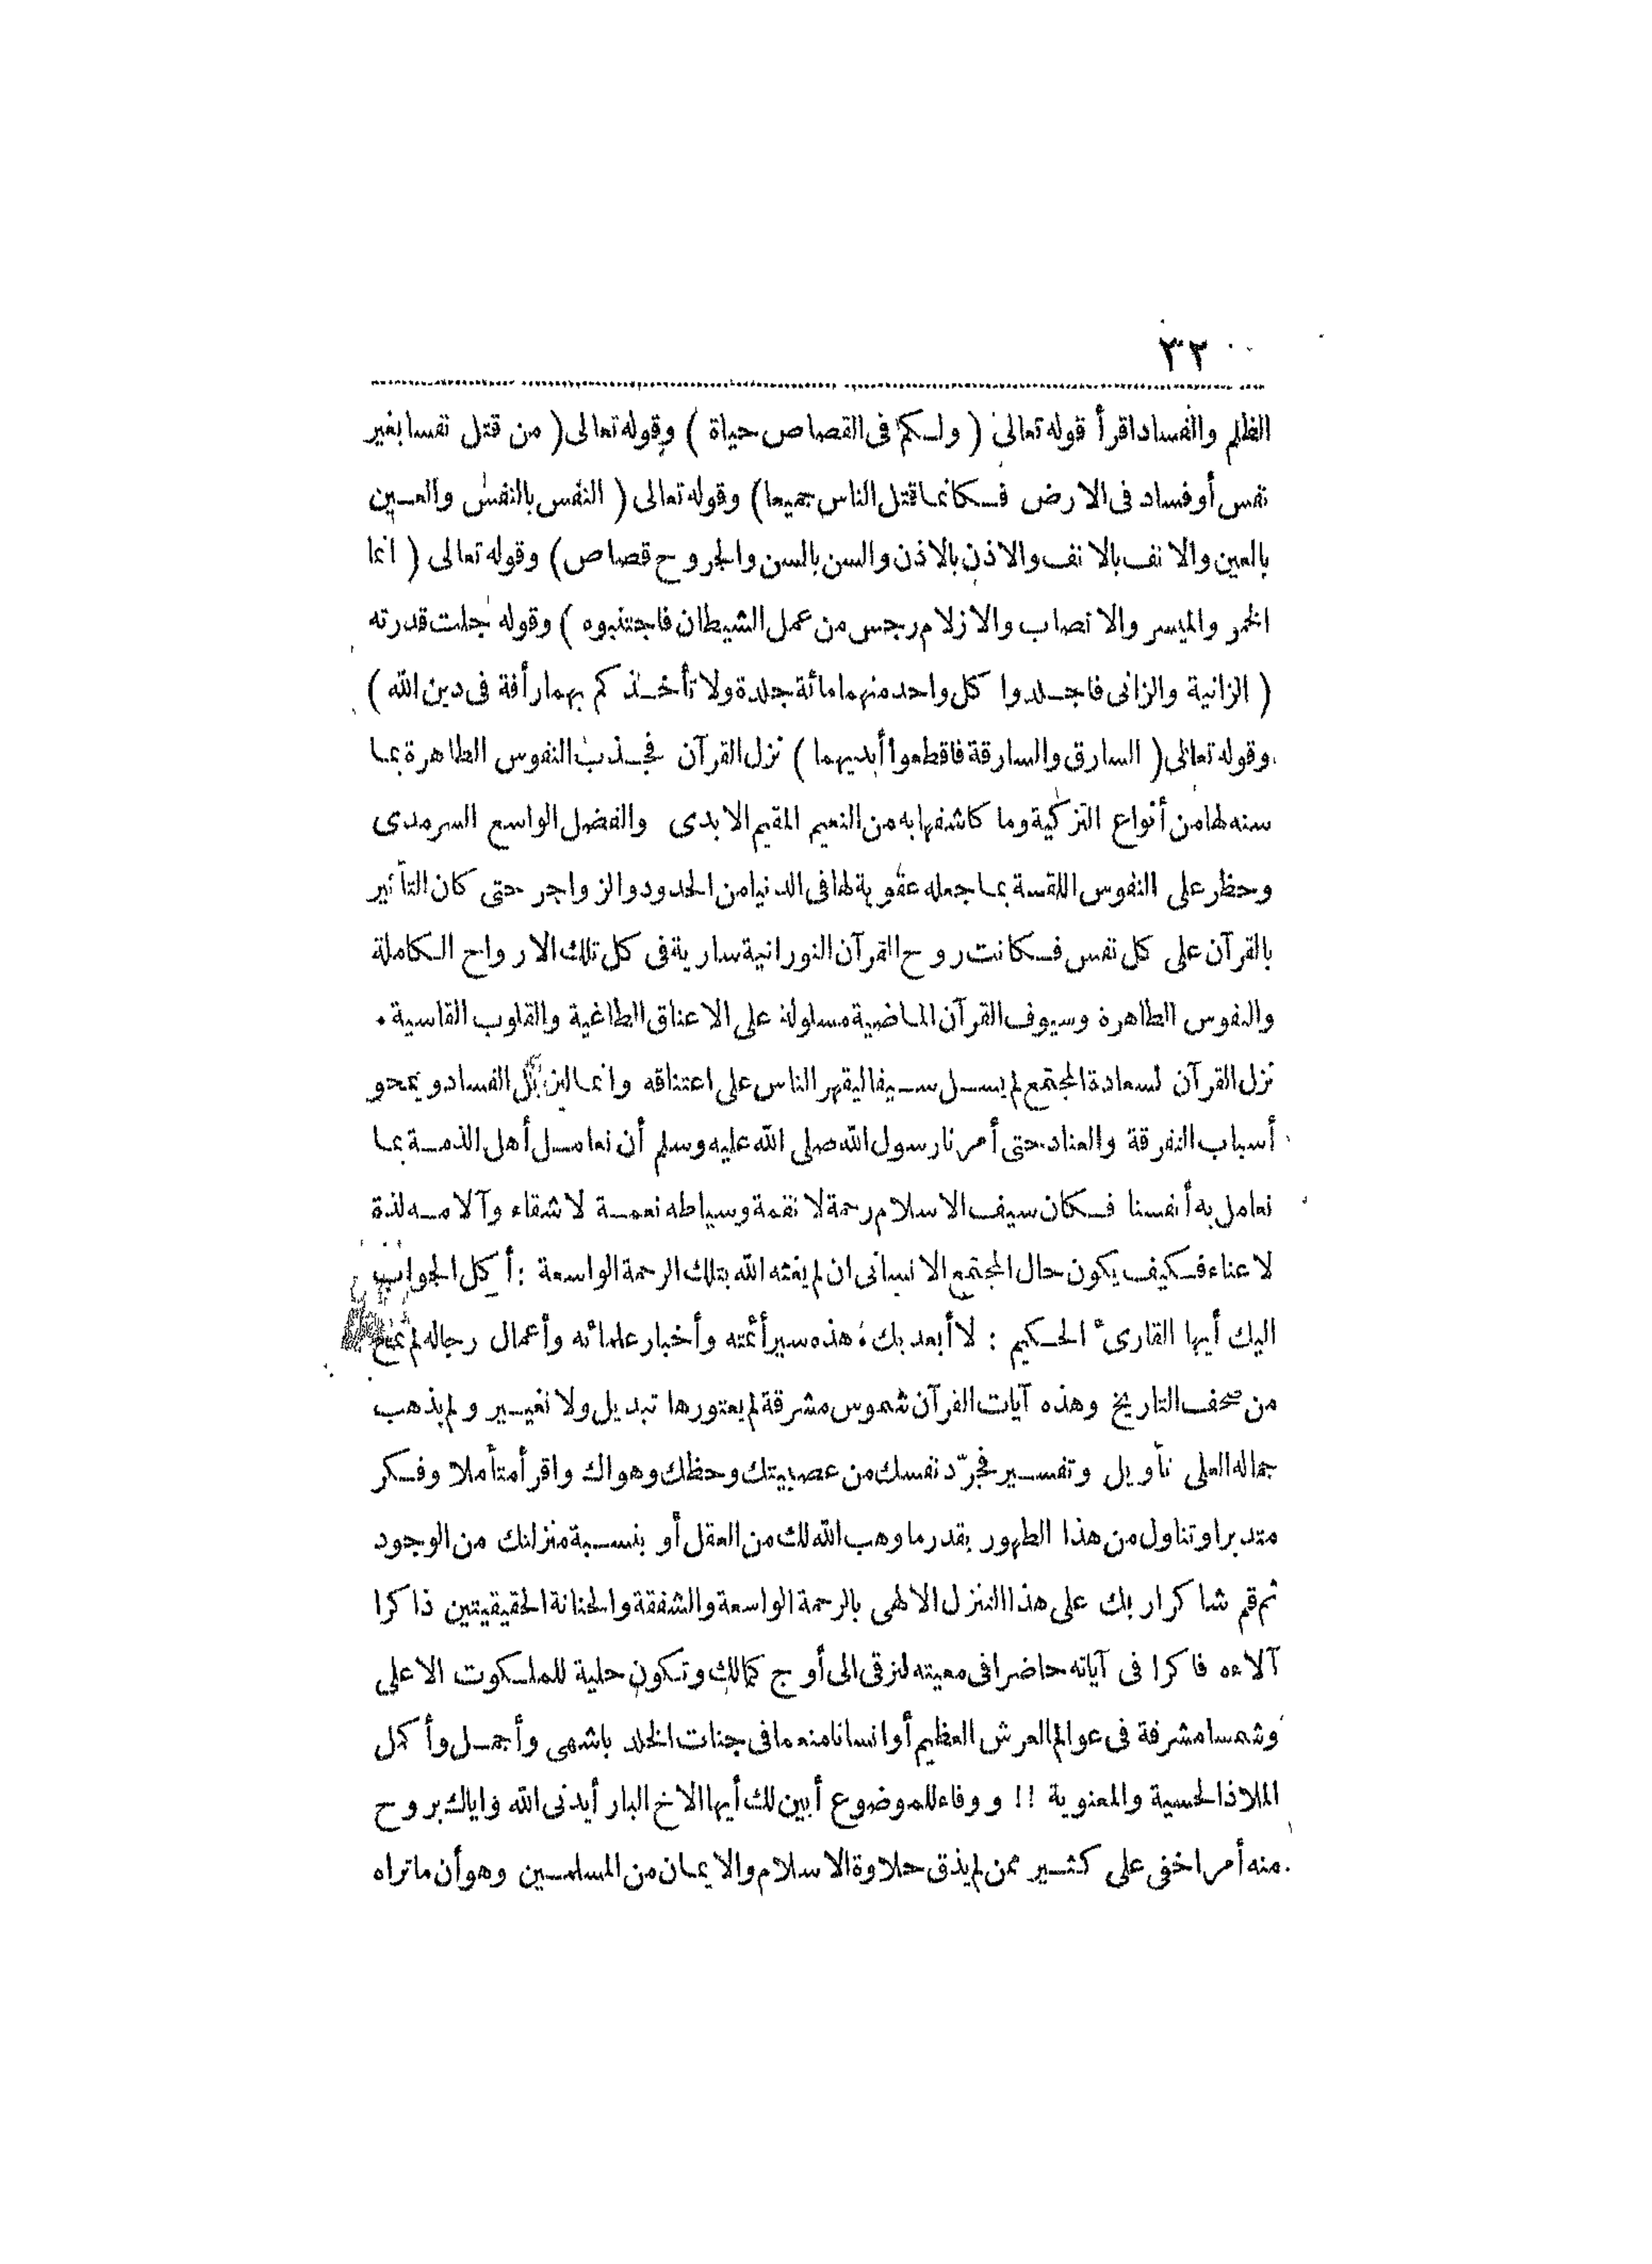 ٣٢
الظلم والفساد اقرأ قوله تعالى ( ولكم فى القصاص حياة ) وقوله تعالى ( من قتل نفسا بغير
نفس أو فساد فى الارض فكانما قتل الناس جميعا ) وقوله تعالى ( النفس بالنفس والعين
بالعين والانف بالانف والاذن بالاذن والسن بالسن والجروح قصاص ) وقوله تعالى ( انما
الخمر والميسر والانصاب والازلام رجس من عمل الشيطان فاجتنبوه ) وقوله جلت قدرته
( الزانية والزانى فاجلدوا كل واحد منهما مائة جلدة ولا تأخذكم بهما رأفة فى دين الله )
وقوله تعالى ( السارق والسارقة فاقطعوا أيديهما ) نزل القرآن فجذب النفوس الطاهرة بما
سنه لها من أنواع التزكية وما كاشفها به من النعيم المقيم الابدى والفضل الواسع السرمدى
وحظر على النفوس اللقسة بما جعله عقوبة لها فى الدنيا من الحدود والزواجر حتى كان التأثير
بالقرآن على كل نفس فكانت روح القرآن النورانية سارية فى كل تلك الارواح الكاملة
والنفوس الطاهرة وسيوف القرآن الماضية مسلولة على الاعناق الطاغية والقلوب القاسية .
نزل القرآن لسعادة المجتمع لم يسل سيفا ليقهر الناس على اعتناقه وانما ليزيل الفساد و يمحو
أسباب التفرقة والعناد حتى أمرنا رسول الله صلى الله عليه وسلم أن نعامل أهل الذمة بما
نعامل به أنفسنا فكان سيف الاسلام رحمة لا نقمة وسياطه نعمة لا شقاء وآلامه لذة
لا عناء فكيف يكون حال المجتمع الانسانى ان لم يغثه الله بتلك الرحمة الواسعة : أكل الجواب
اليك أيها القارىء الحكيم : لا أبعد بك ؛ هذه سير أئمته وأخبار علمائه وأعمال رجاله لم تمح
من صحف التاريخ وهذه آيات القرآن شموس مشرقة لم يعتورها تبديل ولا تغيير و لم يذهب
جماله العلى تأويل وتفسير فجرّد نفسك من عصبيتك وحظك وهواك واقرأ متأملا وفكر
متدبرا وتناول من هذا الطهور بقدر ما وهب الله لك من العقل أو بنسبة منزلتك من الوجود
ثم قم شاكرا ربك على هذا التنزل الالهى بالرحمة الواسعة والشفقة والحنانة الحقيقيتين ذاكرا
آلاءه فاكرا فى آياته حاضرا فى معيته لترقى الى أوج كمالك وتكون حلية للملكوت الاعلى
وشمسا مشرقة فى عوالم العرش العظيم أو انسانا منعما فى جنات الخلد باشهى وأجمل وأكمل
الملاذ الحسية والمعنوية !! ووفاء للموضوع أبين لك أيها الاخ البار أيدنى الله واياك بروح
منه أمرا خفى على كثير ممن لم يذق حلاوة الاسلام والايمان من المسلمين وهو أن ما تراه